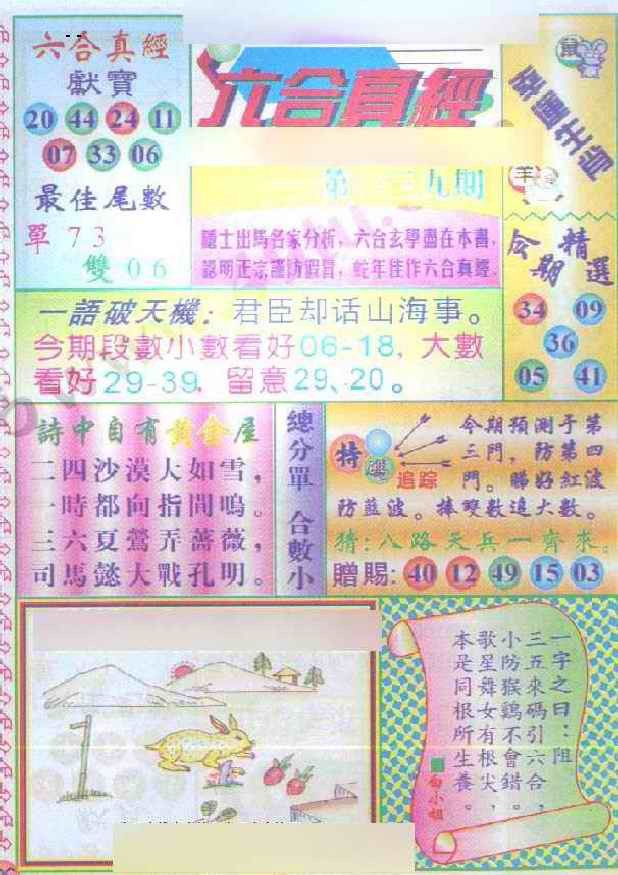 六合真經
獻寶
20 44 24 11
07 33 06
最佳尾數
單 7 3
雙 0 6
六合真經
九期
隱士出馬名家分析，六合玄學盡在本書，
認明正宗謹防假冒，蛇年佳作六合真經。
鼠
幸運生肖
羊
今期精選
34 09
36
05 41
一語破天機：君臣却话山海事。
今期段數小數看好06-18，大數
看好29-39，留意29、20。
詩中自有黃金屋
二四沙漠大如雪，
一時都向指間鳴。
三六夏鶯弄薔薇，
司馬懿大戰孔明。
總分單 合數小
特碼追踪
今期預測于第
三門，防第四
門。睇好紅波
防藍波。捧雙數追大數。
猜：八路天兵一齊來。
贈賜：40 12 49 15 03
一字之曰：阻
三五來碼引六合，
小防猴鷄不會錯。
歌星舞女有根尖，
本是同根所生養。
白小姐